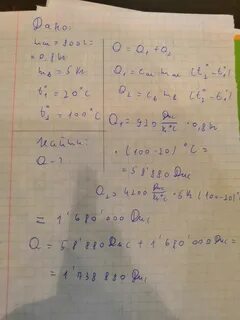 Дано:
mм = 800г =
= 0,8кг
mв = 5 кг
t₁° = 20°C
t₂° = 100°C
Найти:
Q - ?
Q = Q₁ + Q₂
Q₁ = cм mм (t₂° - t₁°)
Q₂ = cв mв (t₂° - t₁°)
Q₁ = 920 Дж/кг°C · 0,8кг
· (100-20) °C =
= 58 880 Дж
Q₂ = 4200 Дж/кг°C · 5кг (100-20)°
= 1'680'000 Дж
Q = 58'880 Дж + 1'680'000 Дж =
= 1'738 880 Дж